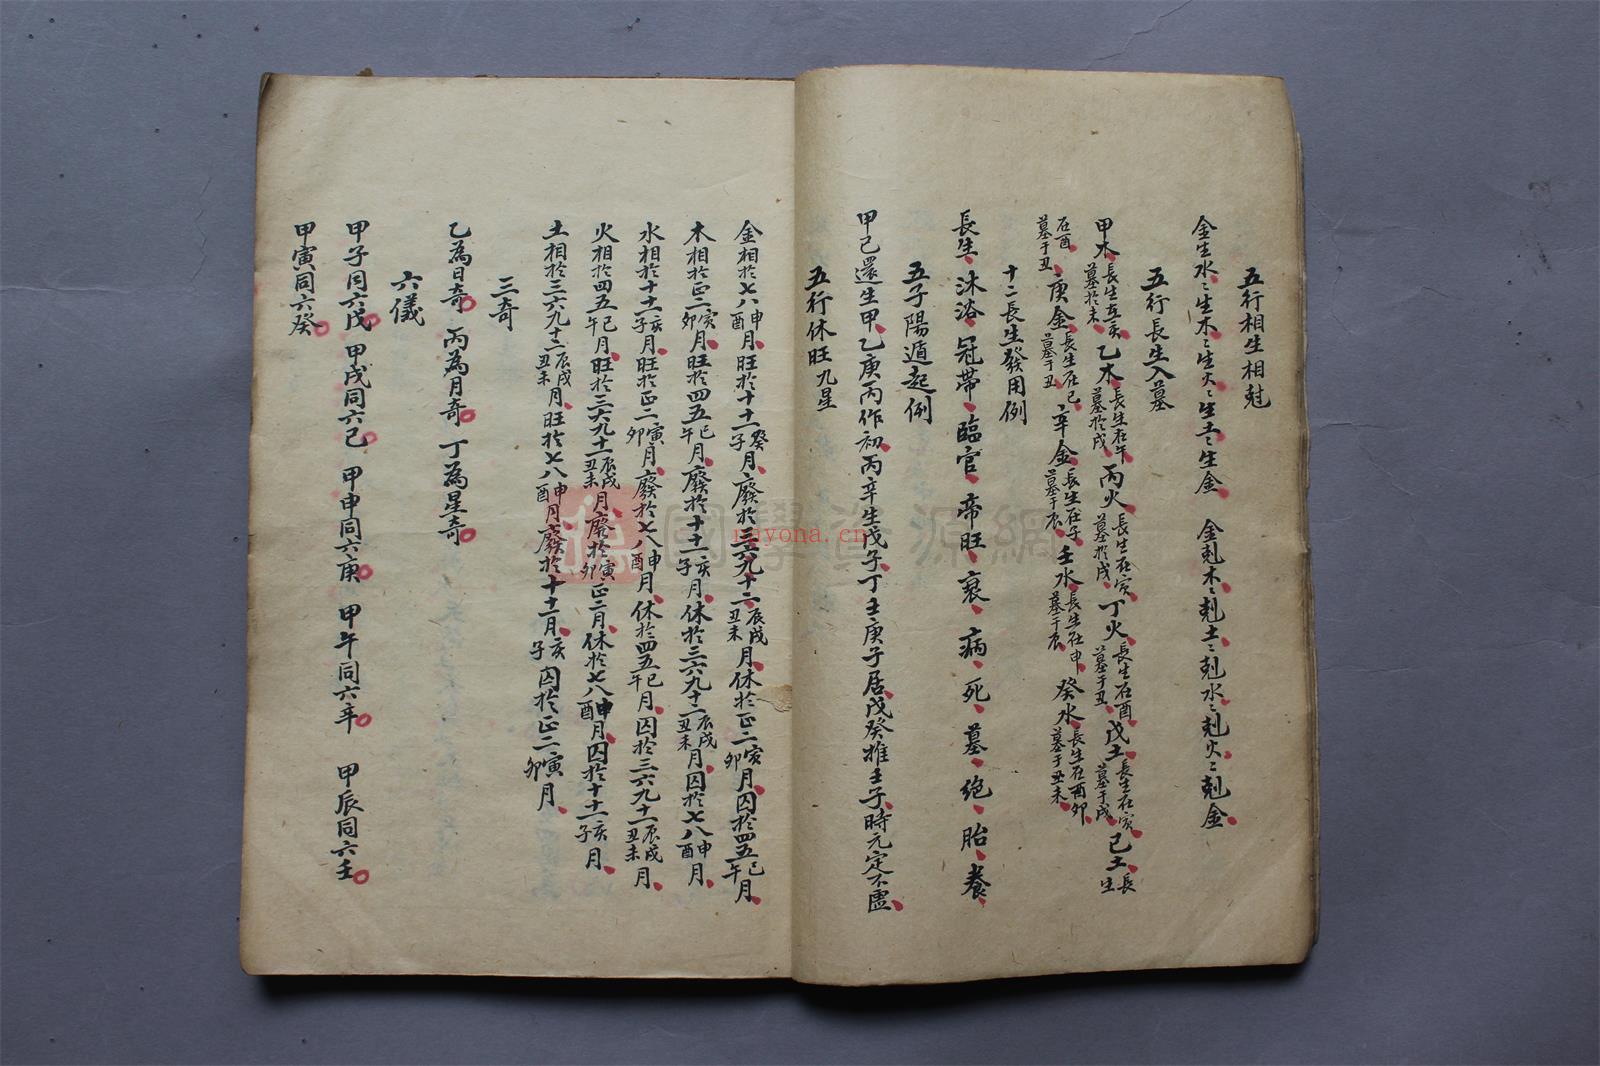 五行相生相尅
金生水〻生木〻生火〻生土〻生金　金尅木〻尅土〻尅水〻尅火〻尅金
五行長生入墓
甲木長生在亥墓於未乙木長生在午墓於戌丙火長生在寅墓於戌丁火長生在酉墓于丑戊土長生在寅墓于戌己土長生
在酉墓于丑庚金長生在巳墓于丑辛金長生在子墓于辰壬水長生在申墓于辰癸水長生在酉卯墓于丑未
十二長生發用例
長生沐浴冠帶臨官帝旺衰病死墓绝胎養
五子陽遁起例
甲己還生甲乙庚丙作初丙辛生戊子丁壬庚子居戊癸推壬子時元定不虛
五行休旺九星
金相於七八申酉月旺於十十一癸子月廢於三六九十二辰戌丑未月休於正二寅卯月囚於四五巳午月
木相於正二寅卯月旺於四五巳午月廢於十十一亥子月休於三六九十二辰戌丑未月囚於七八申酉月
水相於十十一亥子月旺於正二寅卯月廢於七八申酉月休於四五巳午月囚於三六九十一辰戌丑未月
火相於四五巳午月旺於三六九十二辰戌丑未月廢於正二寅卯月休於七八申酉月囚於十十一亥子月
土相於三六九十二辰戌丑未月旺於七八申酉月廢於十十一月亥子囚於正二寅卯月
三奇
乙為日奇　丙為月奇　丁為星奇
六儀
甲子同六戊　甲戌同六己　甲申同六庚　甲午同六辛　甲辰同六壬
甲寅同六癸
國學資源網
nayona.cn